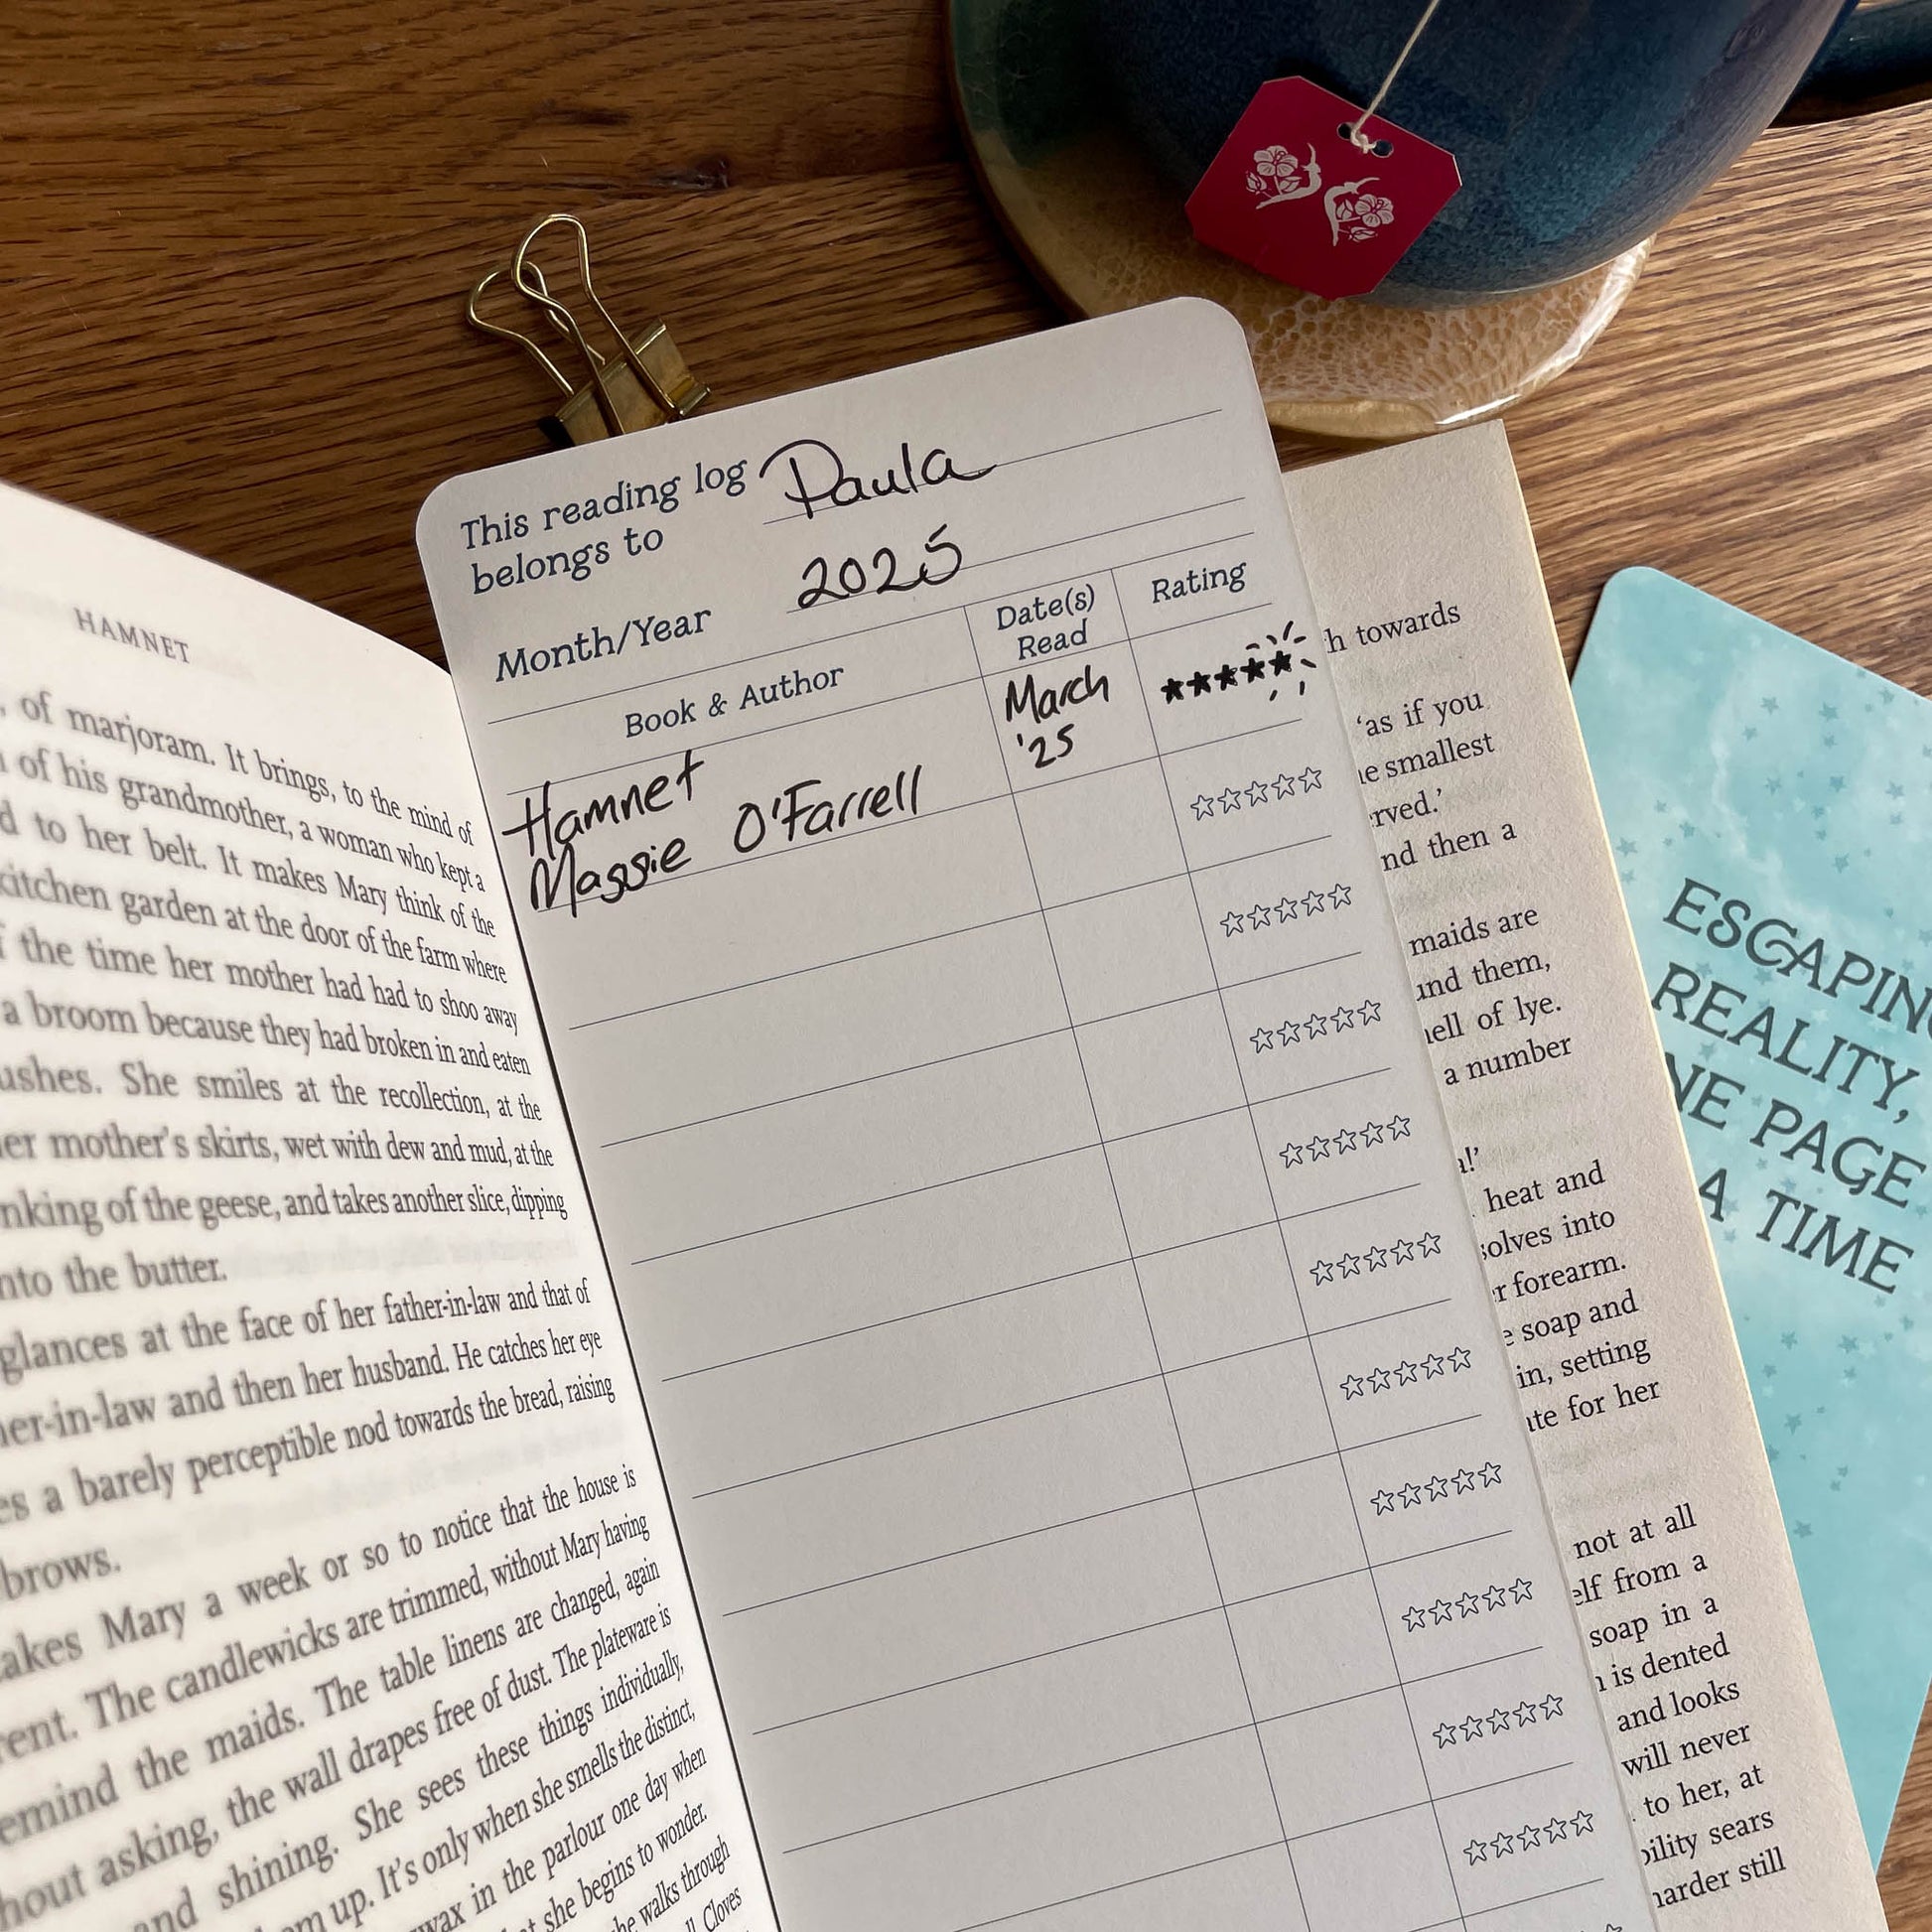 HAMNET
of marjoram. It brings, to the mind of
of his grandmother, a woman who kept a
to her belt. It makes Mary think of the
kitchen garden at the door of the farm where
the time her mother had had to shoo away
a broom because they had broken in and eaten
ushes. She smiles at the recollection, at the
er mother's skirts, wet with dew and mud, at the
nking of the geese, and takes another slice, dipping
nto the butter.
glances at the face of her father-in-law and that of
her-in-law and then her husband. He catches her eye
es a barely perceptible nod towards the bread, raising
brows.
akes Mary a week or so to notice that the house is
rent. The candlewicks are trimmed, without Mary having
emind the maids. The table linens are changed, again
hout asking, the wall drapes free of dust. The plateware is
and shining. She sees these things individually,
em up. It's only when she smells the distinct,
wax in the parlour one day when
she begins to wonder.
he walks through
Cloves
This reading log
belongs to Paula
Month/Year 2025
Book & Author Date(s) Read Rating
Hamnet
Maggie O'Farrell
March
'25
h towards
'as if you
he smallest
rved.'
nd then a
maids are
und them,
nell of lye.
a number
a!'
heat and
solves into
r forearm.
e soap and
in, setting
ate for her
not at all
elf from a
soap in a
n is dented
and looks
will never
to her, at
bility sears
harder still
ESCAPING
REALITY,
NE PAGE
A TIME